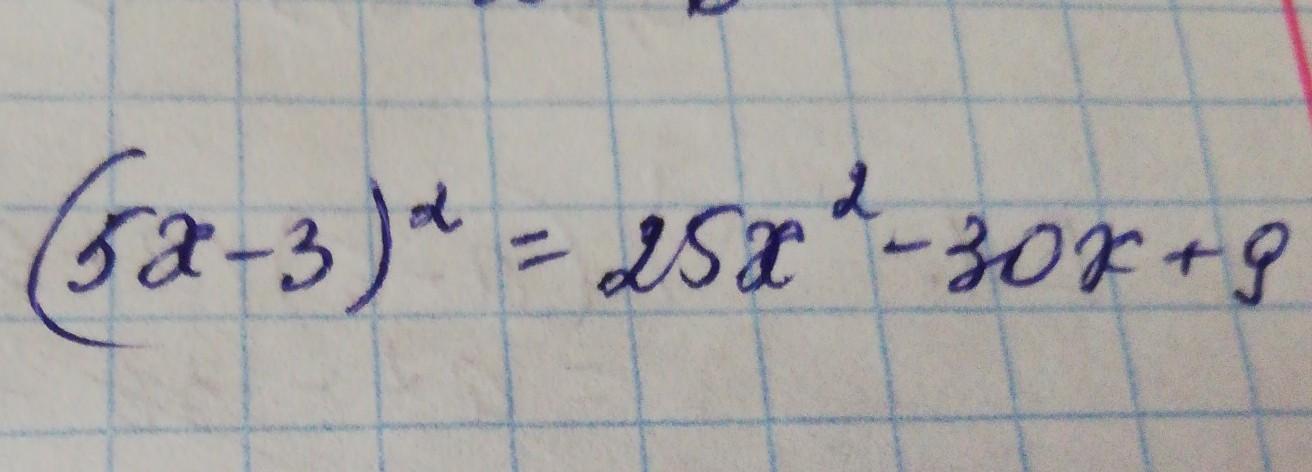 (5x-3)² = 25x² - 30x + 9